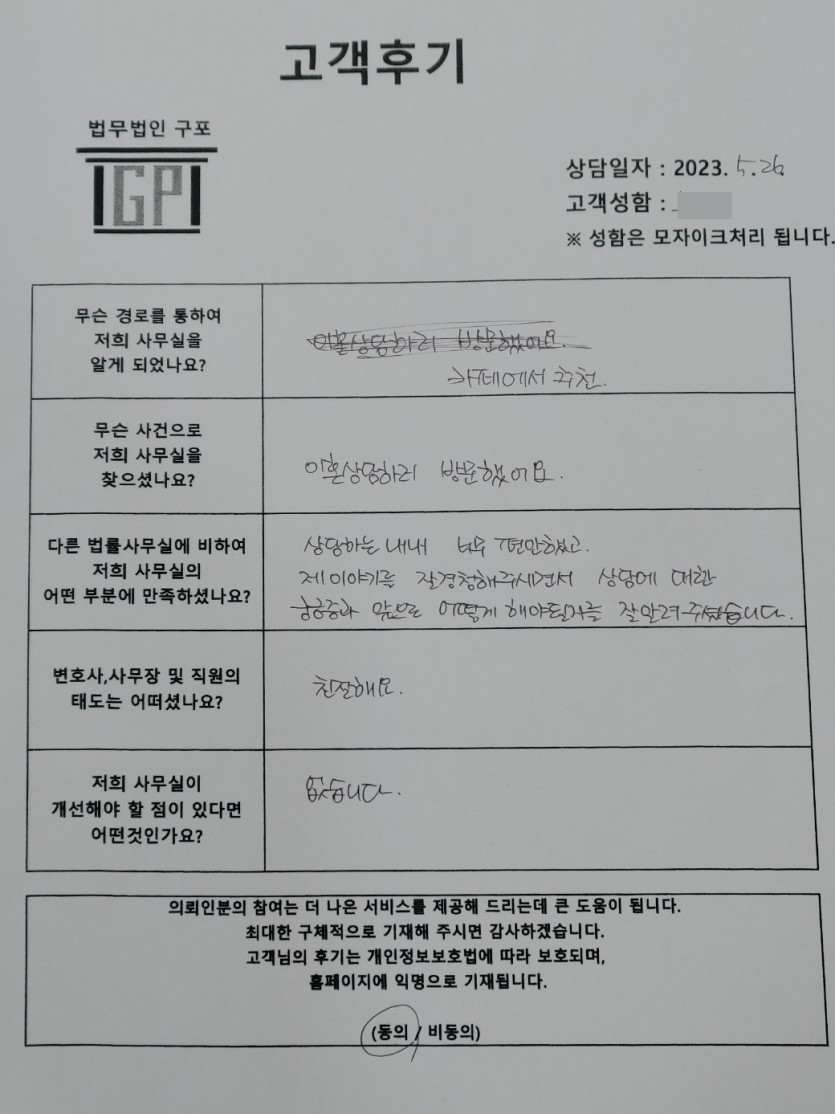 고객후기
법무법인 구포
GP
상담일자 : 2023. 5. 26
고객성함 :
※ 성함은 모자이크처리 됩니다.
무슨 경로를 통하여
저희 사무실을
알게 되었나요?
이혼상담하러 방문했어요.
카페에서 추천.
무슨 사건으로
저희 사무실을
찾으셨나요?
이혼상담하러 방문했어요.
다른 법률사무실에 비하여
저희 사무실의
어떤 부분에 만족하셨나요?
상담하는 내내 너무 편안했고.
제 이야기를 잘 경청해주시면서 상담에 대한
궁금증과 앞으로 어떻게 해야될지를 잘 알려주셨습니다.
변호사,사무장 및 직원의
태도는 어떠셨나요?
친절해요.
저희 사무실이
개선해야 할 점이 있다면
어떤것인가요?
없습니다.
의뢰인분의 참여는 더 나은 서비스를 제공해 드리는데 큰 도움이 됩니다.
최대한 구체적으로 기재해 주시면 감사하겠습니다.
고객님의 후기는 개인정보보호법에 따라 보호되며,
홈페이지에 익명으로 기재됩니다.
(동의 / 비동의)